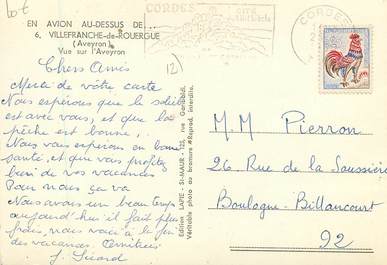 lot
EN AVION AU-DESSUS DE...
6. VILLEFRANCHE-de-ROUERGUE
(Aveyron)
Vue sur l'Aveyron
12)
CORDES
CORDES
Chers Amis
Merci de votre carte
Nous espérons que le soleil
est avec vous, et que la
pêche est bonne,
Nous vous espérons en bonne
santé, et que vous profitez
bien de vos vacances
Pour nous ça va
Nous avons un beau temps
aujourd'hui il fait plus
frais, nous voici à la fin
des vacances. Amitiés
J. Sicard
Edition LAPIE - ST-MAUR - 122, rue Garibaldi.
Véritable photo au bromure • Reprod. interdite.
M.M Pierron
26 Rue de la Saussière
Boulogne-Billancourt
92